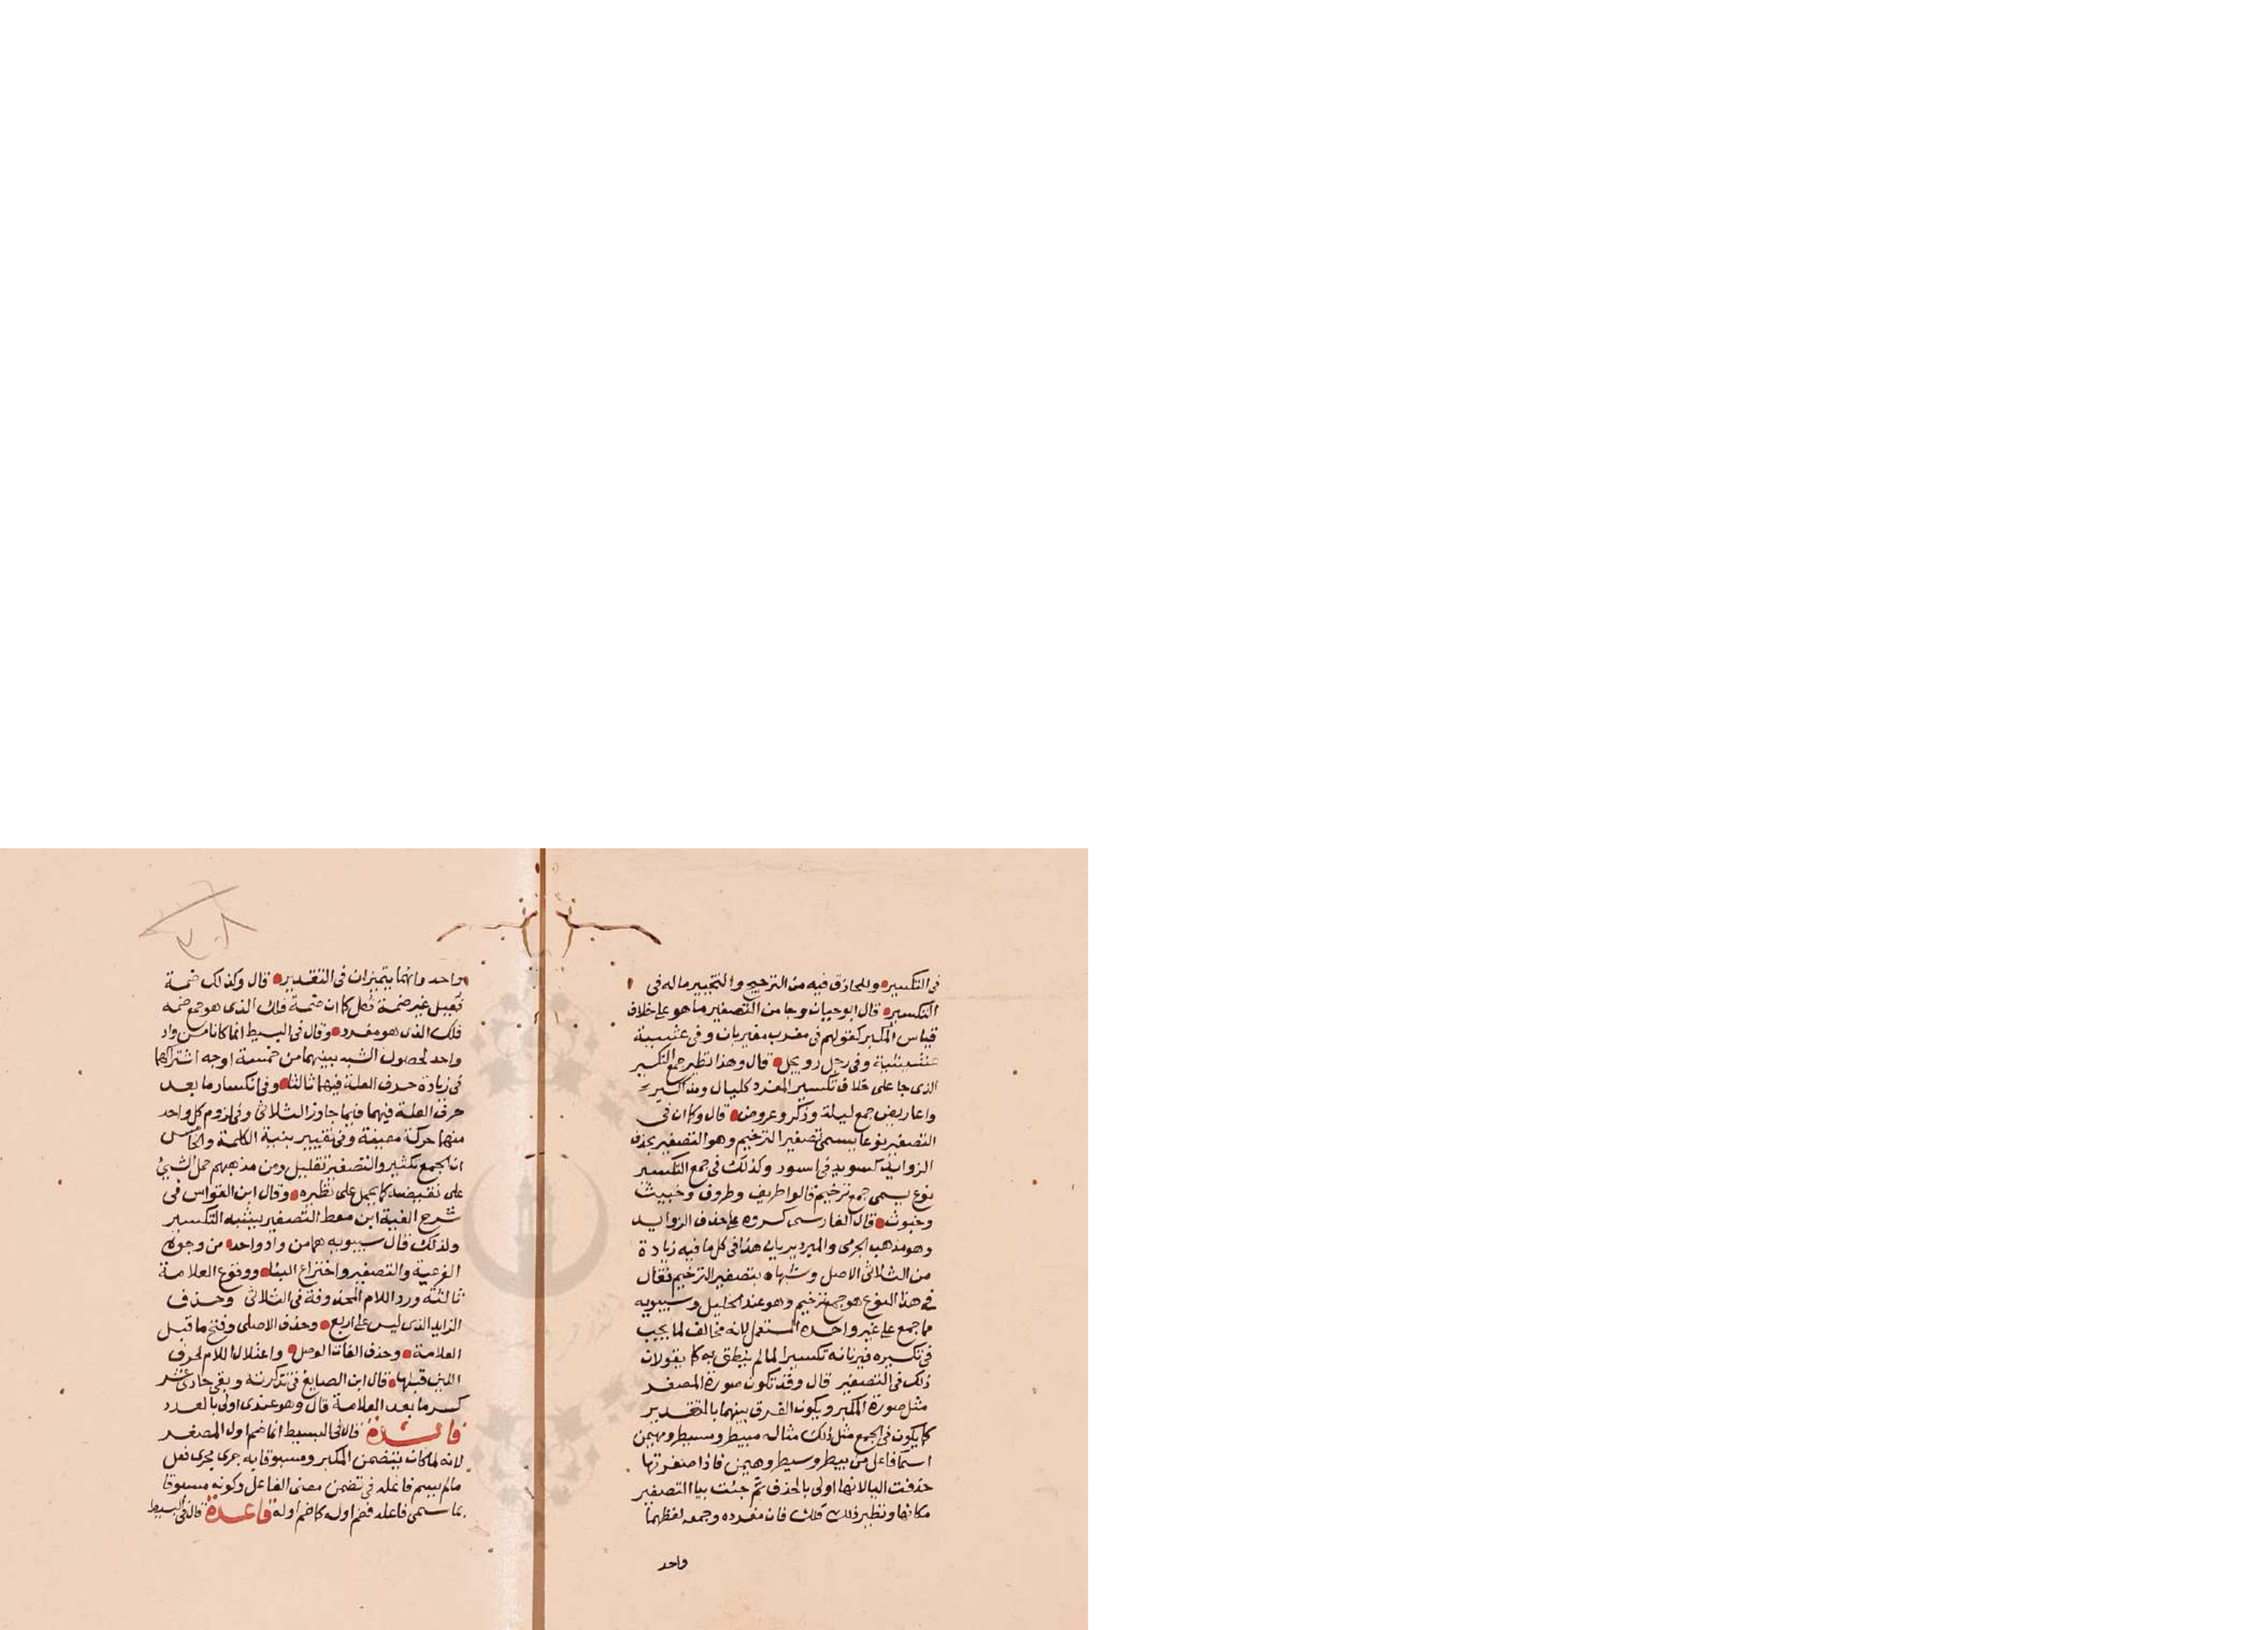 في التكسير وللحاذق فيه من الترجيح والتخيير ماله في
التكسير قال ابو حيان وجا من التصغير ما هو على خلاف
قياس المكبر كقولهم في مغرب مغيربان وفي عشية
عشيشية وفي رجل رويجل قال وهذا نظير جمع التكسير
الذي جا على خلاف تكسير المفرد كليال ومذاكير
واعاريض جمع ليلة وذكر وعروض قال وكما ان في
التصغير نوعا يسمى تصغير الترخيم وهو التصغير بحذف
الزوايد كسويد في اسود وكذلك في جمع التكسير
نوع يسمى جمع ترخيم قالوا ظريف وظروف وخبيث
وخبوث قال الفارسي كسروه على حذف الزوايد
وهو مذهب الجرمي والمبرد يريان هذا في كل ما فيه زيادة
من الثلاثي الاصل وشبهاه بتصغير الترخيم فقال
في هذا النوع هو جمع ترخيم وهو عند الخليل وسيبويه
مما جمع على غير واحده المستعمل لانه مخالف لما يجب
في تكسيره فيريانه تكسيرا لما لم ينطق به كما يقولان
ذلك في التصغير قال وقد تكون صورة المصغر
مثل صورة المكبر ويكون الفرق بينهما بالتقدير
كما يكون في الجمع مثل ذلك مثاله مبيطر ومسيطر ومهيمن
اسما فاعل من بيطر وسيطر وهيمن فاذا صغرتها
حذفت اليا لانها اولى بالحذف ثم جئت بيا التصغير
مكانها ونظير ذلك فلك فان مفرده وجمعه لفظهما
واحد
واحد وانهما يتميزان في التقدير قال وكذلك ضمة
فعيل غير ضمة فعل كما ان ضمة فلك الذي هو جمع ضمه
فلك الذي هو مفرد وقال في البسيط انما كانا من واد
واحد لحصول الشبه بينهما من خمسة اوجه اشتراكهما
في زيادة حرف العلة فيهما ثالثا وفي انكسار ما بعد
حرف العلة فيهما فيما جاوز الثلاثي وفي لزوم كل واحد
منهما حركة معينة وفي تغيير بنية الكلمة والخامس
ان الجمع تكثير والتصغير تقليل ومن مذهبهم حمل الشيئ
على نقيضه كما يحمل على نظيره وقال ابن القواس في
شرح الفية ابن معط التصغير يشبه التكسير
ولذلك قال سيبويه هما من واد واحد من وجوه
الفرعية والتصغير واختراع البنا ووقوع العلامة
ثالثة ورد اللام المحذوفة في الثلاثي وحذف
الزايد الذي ليس على اربع وحذف الاصلي وفتح ما قبل
العلامة وحذف الفات الوصل واعتلال اللام لحرف
اللين قبلها قال ابن الصايغ في تذكرته وبقي حادي عشر
كسر ما بعد العلامة قال وهو عندي اولى بالعدد
فائدة قال في البسيط انما ضم اول المصغر
لانه لما كان يتضمن المكبر ومسبوقا به جرى مجرى فعل
مالم يسم فاعله في تضمن معنى الفاعل وكونه مسبوقا
بما سمي فاعله فضم اوله كما ضم اوله قاعدة قال في البسيط